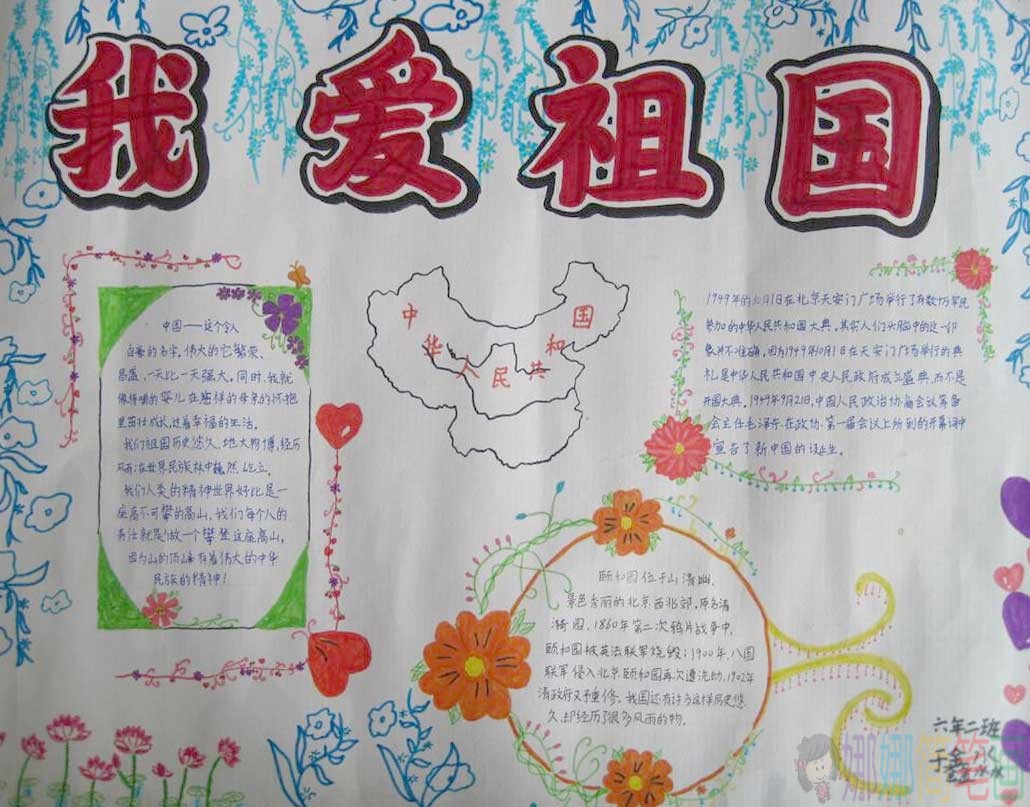 我爱祖国
中国——这个令人
自豪的名字,伟大的它繁荣、
昌盛、一天比一天强大。同时,我就
像待哺的婴儿在慈祥的母亲的怀抱
里茁壮成长,过着幸福的生活。
我们祖国历史悠久、地大物博,经历
风雨在世界民族林中巍然屹立。
我们人类的精神世界好比是一
座高不可攀的高山,我们每个人的
责任就是做一个攀登这座高山,
因为山的顶峰有着伟大的中华
民族的精神!
中华人民共和国
1949年的10月1日在北京天安门广场举行了有数万军民
参加的中华人民共和国大典。其实人们头脑中的这一印
象并不准确。因为1949年10月1日在天安门广场举行的典
礼是中华人民共和国中央人民政府成立盛典,而不是
开国大典。1949年9月21日,中国人民政治协商会议筹备
会主任毛泽东在政协第一届会议上所到的开幕词中
宣告了新中国的诞生。
颐和园位于山清幽、
景色秀丽的北京西北郊,原名清
漪园、1860年第二次鸦片战争中,
颐和园被英法联军烧毁;1900年,八国
联军侵入北京颐和园再次遭洗劫,1902年
清政府又予重修。我国还有许多这样历史悠
久却经历了很多风雨的物。
六年二班
于
娜娜 笔